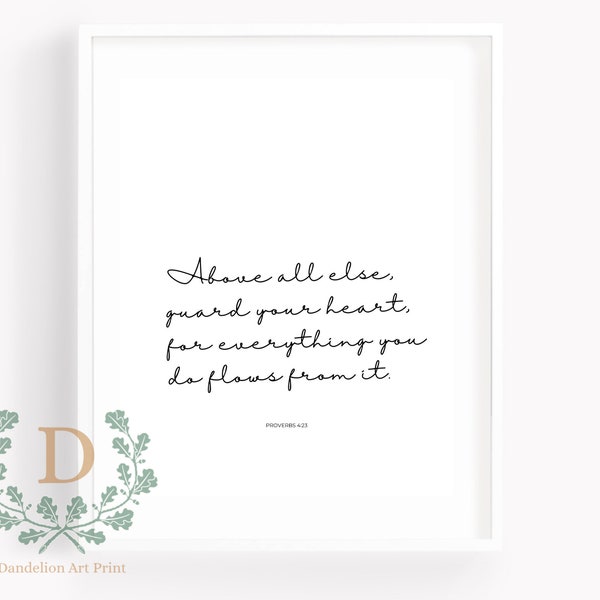 Above all else,
guard your heart,
for everything you
do flows from it.
PROVERBS 4:23
D
Dandelion Art Print